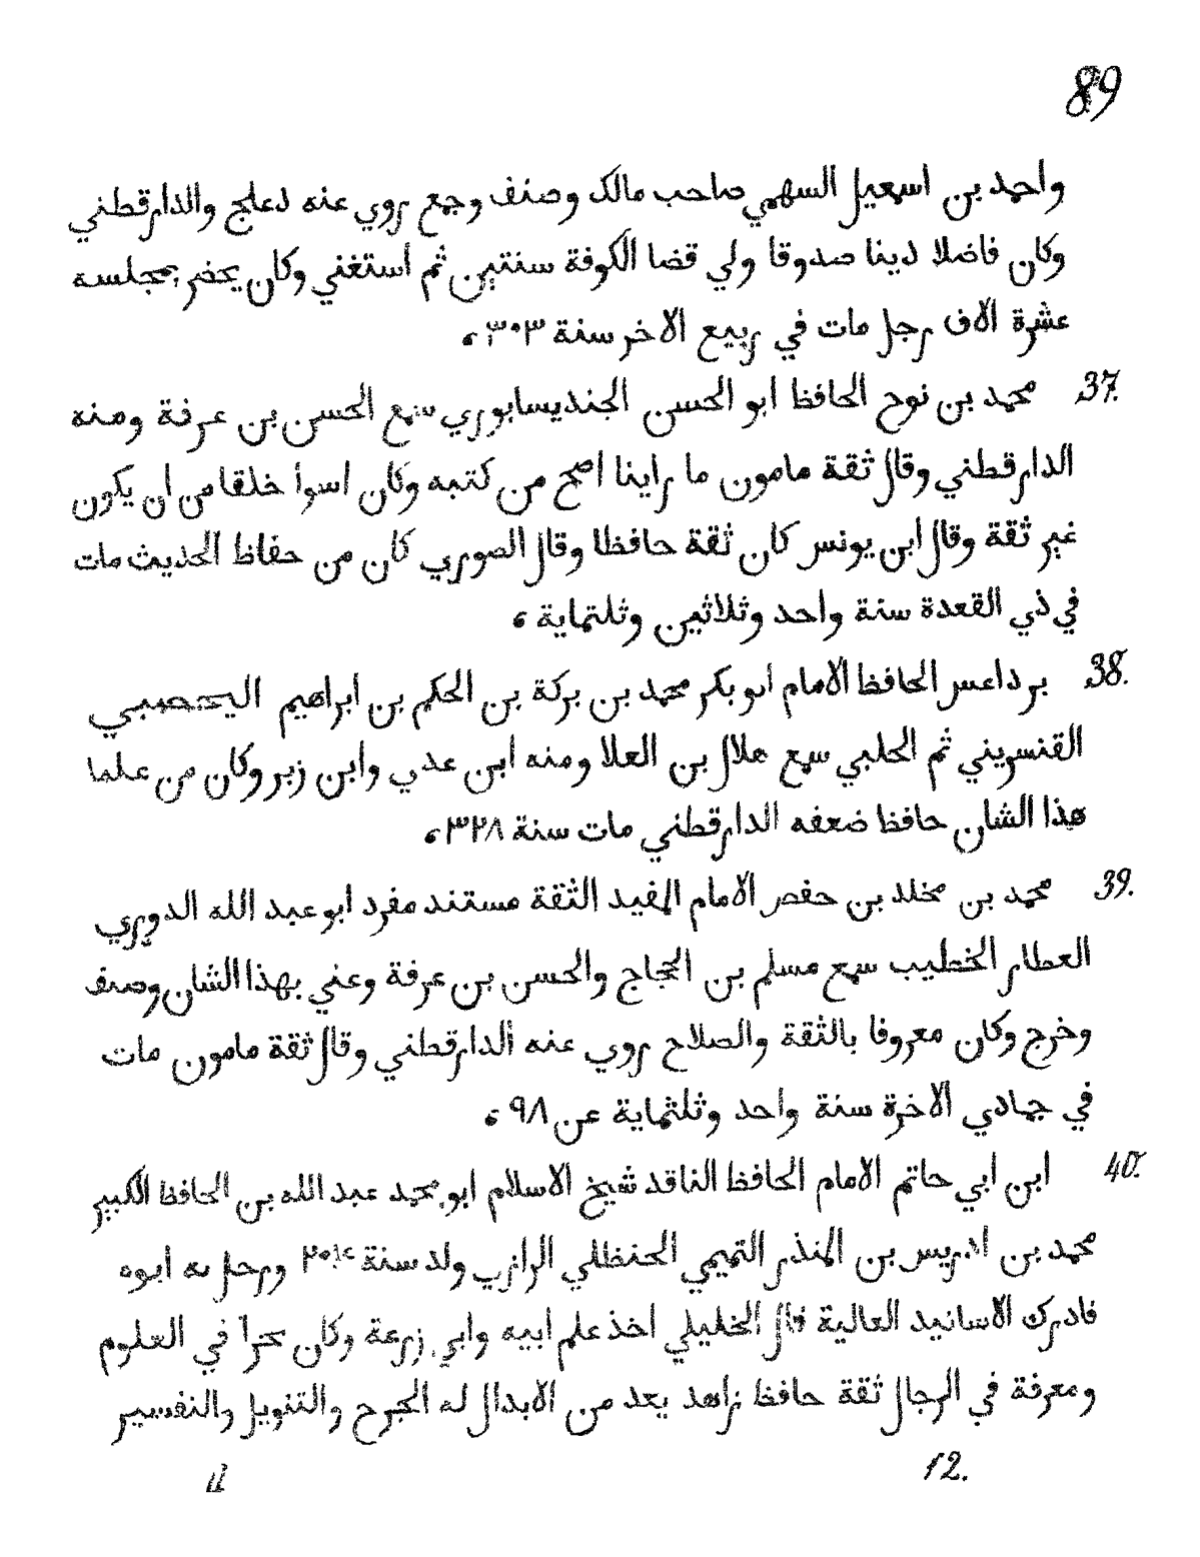 89
واحمد بن اسمعيل السهمي صاحب مالك وصنف وجمع روي عنه دعلج والدارقطني
وكان فاضلا دينا صدوقا ولي قضا الكوفة سنتين ثم استغني وكان يحضر بمجلسه
عشرة الاف رجل مات في ربيع الاخر سنة ٣٠٣،
37. محمد بن نوح الحافظ ابو الحسن الجنديسابوري سمع الحسن بن عرفة ومنه
الدارقطني وقال ثقة مامون ما راينا اصح من كتبه وكان اسوا خلقا من ان يكون
غير ثقة وقال ابن يونس كان ثقة حافظا وقال الصوري كان من حفاظ الحديث مات
في ذي القعدة سنة واحد وثلاثين وثلثماية،
38. برداعس الحافظ الامام ابو بكر محمد بن بركة بن الحكم بن ابراهيم اليحصبي
القنسريني ثم الحلبي سمع هلال بن العلا ومنه ابن عدي وابن زبر وكان من علما
هذا الشان حافظ ضعفه الدارقطني مات سنة ٣٢٨،
39. محمد بن مخلد بن حفص الامام المفيد الثقة مستند مفرد ابو عبد الله الدوري
العطار الخطيب سمع مسلم بن الحجاج والحسن بن عرفة وعني بهذا الشان وصنف
وخرج وكان معروفا بالثقة والصلاح روي عنه الدارقطني وقال ثقة مامون مات
في جمادي الاخرة سنة واحد وثلثماية عن ٩٨،
40. ابن ابي حاتم الامام الحافظ الناقد شيخ الاسلام ابو محمد عبد الله بن الحافظ الكبير
محمد بن ادريس بن المنذر التميمي الحنظلي الرازي ولد سنة ورحل به ابوه
فادرك الاسانيد العالية قال الخليلي اخذ علم ابيه وابي زرعة وكان بحرا في العلوم
ومعرفة في الرجال ثقة حافظ زاهد يعد من الابدال له الجرح والتنويل والتفسير
12.